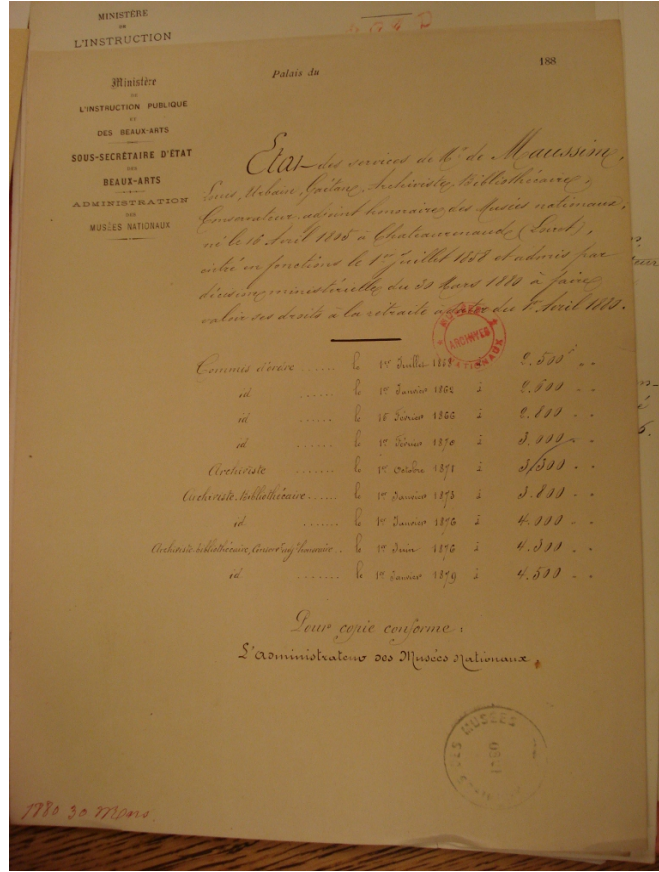 MINISTÈRE
DE
L'INSTRUCTION
Ministère
DE
L'INSTRUCTION PUBLIQUE
ET
DES BEAUX-ARTS
SOUS-SECRÉTAIRE D'ÉTAT
DES
BEAUX-ARTS
ADMINISTRATION
DES
MUSÉES NATIONAUX
Palais du
188
Etat des services de Mr. de Maussion,
Louis, Urbain, Gaëtan, Archiviste, Bibliothécaire,
Conservateur-adjoint honoraire des Musées nationaux,
né le 16 Avril 1805 à Chateaurenaud (Loiret),
entré en fonctions le 1er Juillet 1858 et admis par
décision ministérielle du 30 Mars 1880 à faire
valoir ses droits à la retraite à dater du 1er Avril 1880.
MUSÉES NATIONAUX
ARCHIVES
Commis d'ordre ...... le 1er Juillet 1858 à 2.500f " "
id ...... le 1er Janvier 1862 à 2.600 " "
id ...... le 16 Février 1866 à 2.800 " "
id ...... le 1er Février 1870 à 3.000 " "
Archiviste ...... le 1er Octobre 1871 à 3.300 " "
Archiviste, Bibliothécaire ...... le 1er Janvier 1873 à 3.800 " "
id ...... le 1er Janvier 1876 à 4.000 " "
Archiviste bibliothécaire, Conservr adjt honoraire .. le 1er Juin 1876 à 4.300 " "
id ...... le 1er Janvier 1879 à 4.500 " "
Pour copie conforme :
L'administrateur des Musées Nationaux,
DES MUSÉES
1880 30 Mars.